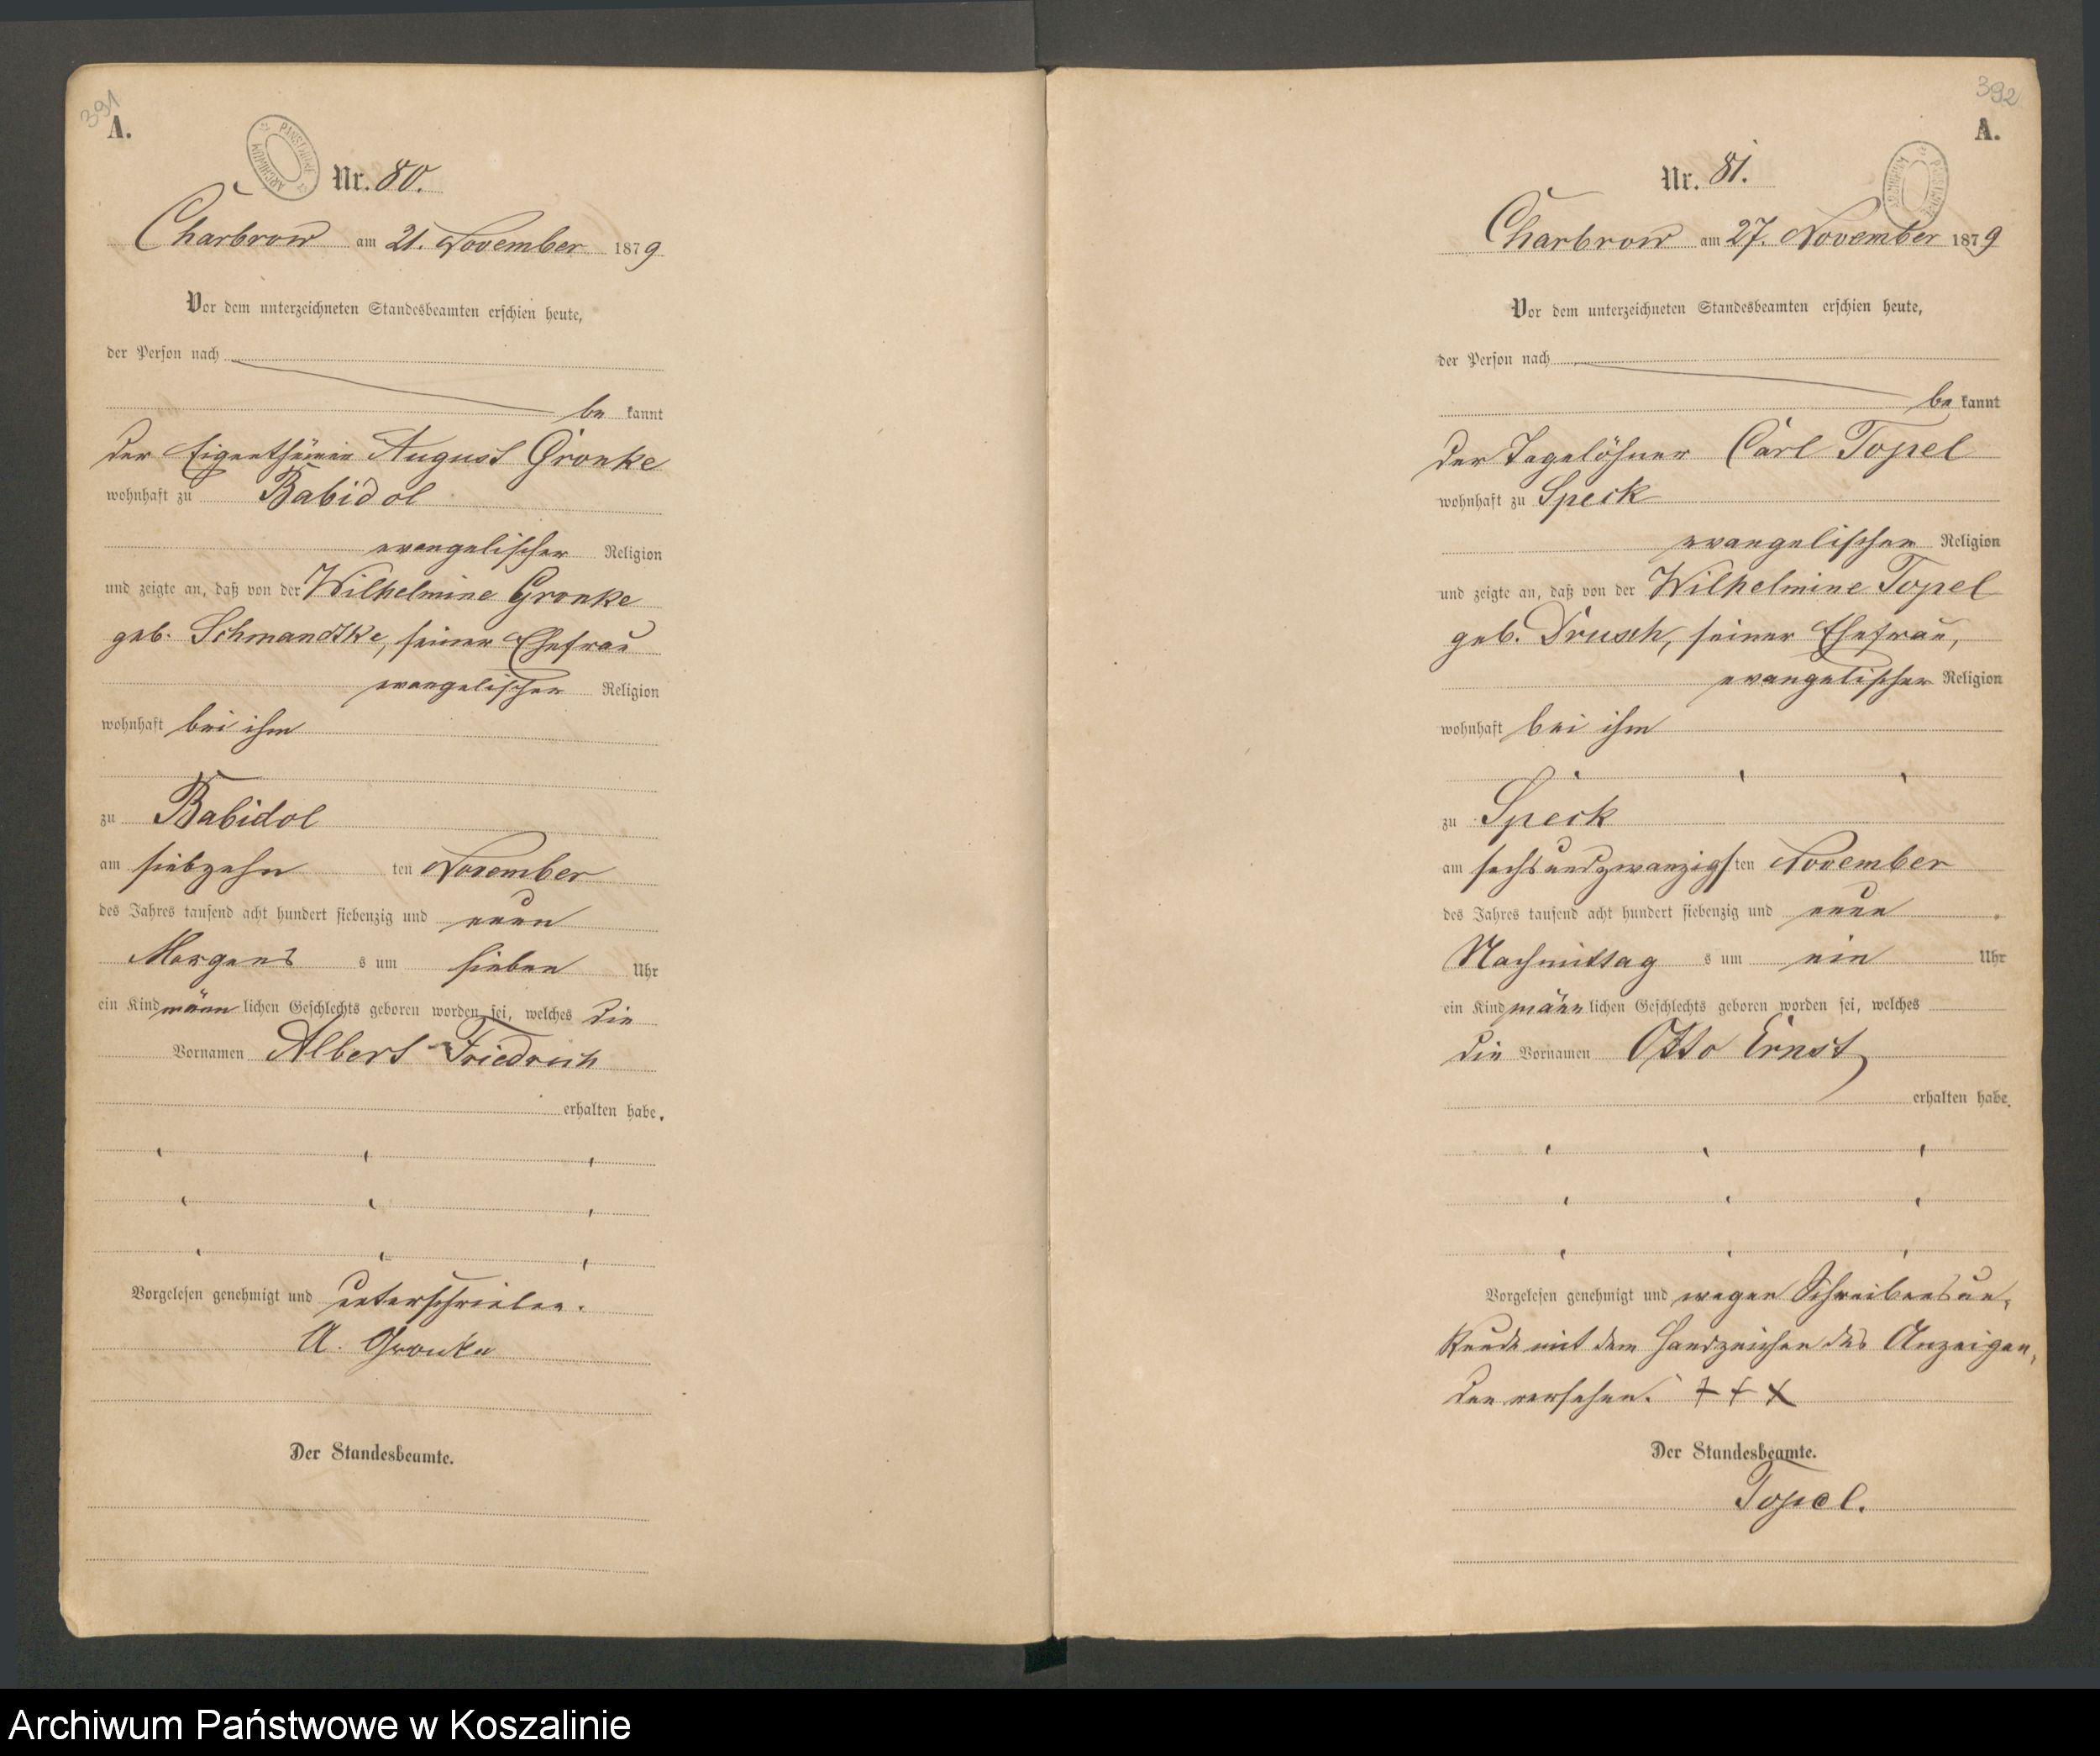 391
A.
ARCHIWUM PAŃSTWOWE
Nr. 80.
Charbrow am 21. November 1879
Vor dem unterzeichneten Standesbeamten erschien heute,
der Person nach
be kannt
der Eigenthümer August Gronke
wohnhaft zu Babidol
evangelischer Religion
und zeigte an, daß von der Wilhelmine Gronke
geb. Schmandtke, seiner Ehefrau
evangelischer Religion
wohnhaft bei ihm
zu Babidol
am siebzehn ten November
des Jahres tausend acht hundert siebenzig und neun
Morgens s um sieben Uhr
ein Kind männ lichen Geschlechts geboren worden sei, welches die
Vornamen Albert Friedrich
erhalten habe.
Vorgelesen genehmigt und unterschrieben.
A. Gronke
Der Standesbeamte.
392
A.
ARCHIWUM PAŃSTWOWE
Nr. 81.
Charbrow am 27. November 1879
Vor dem unterzeichneten Standesbeamten erschien heute,
der Person nach
be kannt
der Tagelöhner Carl Topel
wohnhaft zu Speck
evangelischer Religion
und zeigte an, daß von der Wilhelmine Topel
geb. Drusch, seiner Ehefrau,
evangelischer Religion
wohnhaft bei ihm
zu Speck
am sechsundzwanzigsten November
des Jahres tausend acht hundert siebenzig und neun
Nachmittag s um ein Uhr
ein Kind männ lichen Geschlechts geboren worden sei, welches
die Vornamen Otto Ernst
erhalten habe.
Vorgelesen genehmigt und wegen Schreibensun-
kunde mit dem Handzeichen des Anzeigen-
den versehen. + + +
Der Standesbeamte.
Topel.
Archiwum Państwowe w Koszalinie